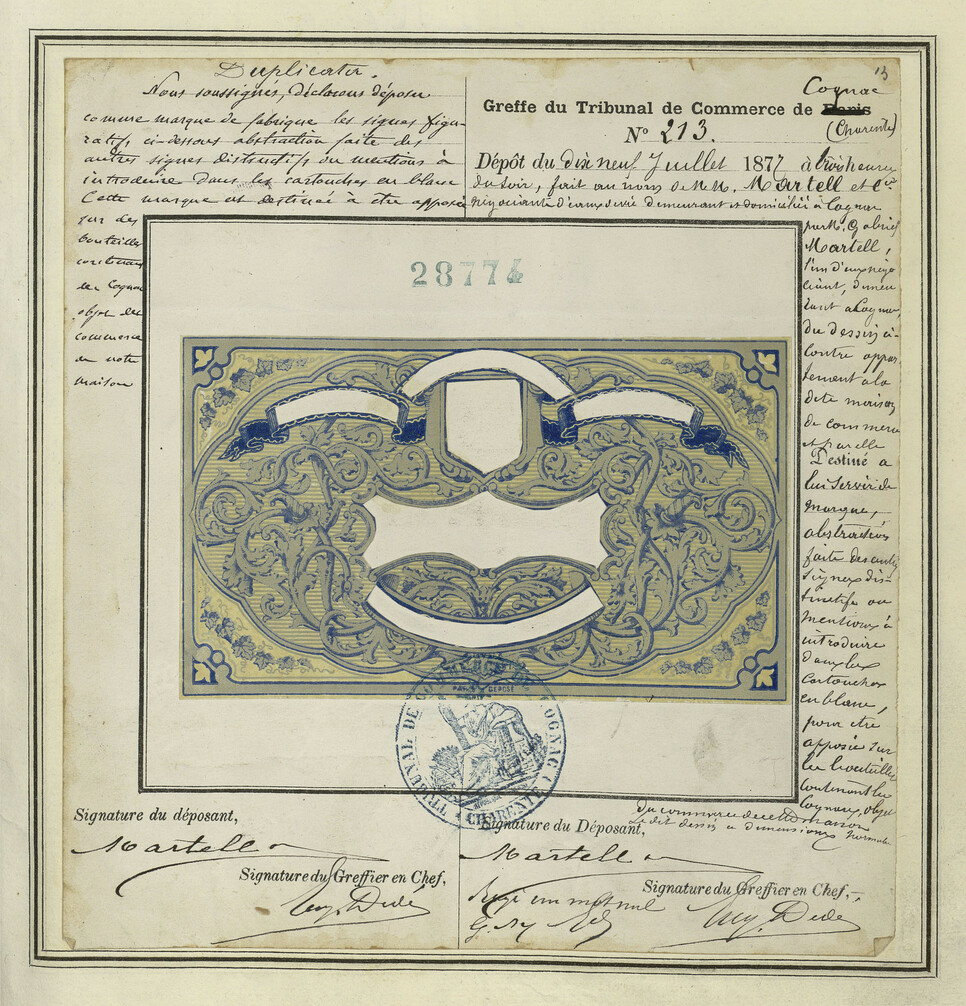 Duplicata.
Nous soussignés, déclarons déposer
comme marque de fabrique les signes figu-
ratifs ci-dessous abstraction faite des
autres signes distinctifs ou mentions à
introduire dans les cartouches en blanc
Cette marque est destinée à être apposée
sur des
bouteilles
contenant
du Cognac
objet du
commerce
de notre
maison
13
Cognac
Greffe du Tribunal de Commerce de Paris
(Charente)
N° 213.
Dépôt du dix neuf Juillet 1877 à trois heures
du soir, fait au nom de M.M. Martell et Cie
négociants d'eaux de vie demeurant et domiciliés à Cognac
par M. Gabriel
Martell,
l'un d'eux négo
ciant, demeu
rant à Cognac,
du dessin ci-
contre appar
tenant à la
dite maison
de commerce
et par elle
Destiné a
lui servir de
marque,
abstraction
faite des autres
signes dis-
tinctifs ou
mentions à
introduire
dans les
cartouches
en blanc,
pour être
apposée sur
les bouteilles
contenant les
Cognacs, objet
du commerce de cette maison
Le dit dessin a dimensions normales
28774
DÉPOSÉ
TRIBUNAL DE COMMERCE DE COGNAC
CHARENTE
Signature du déposant,
Martell
Signature du Greffier en Chef,
Signature du Déposant,
Martell
Signature du Greffier en Chef,